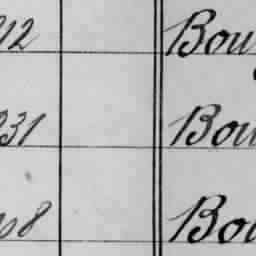 12 Bou
31 Bou
08 Bou